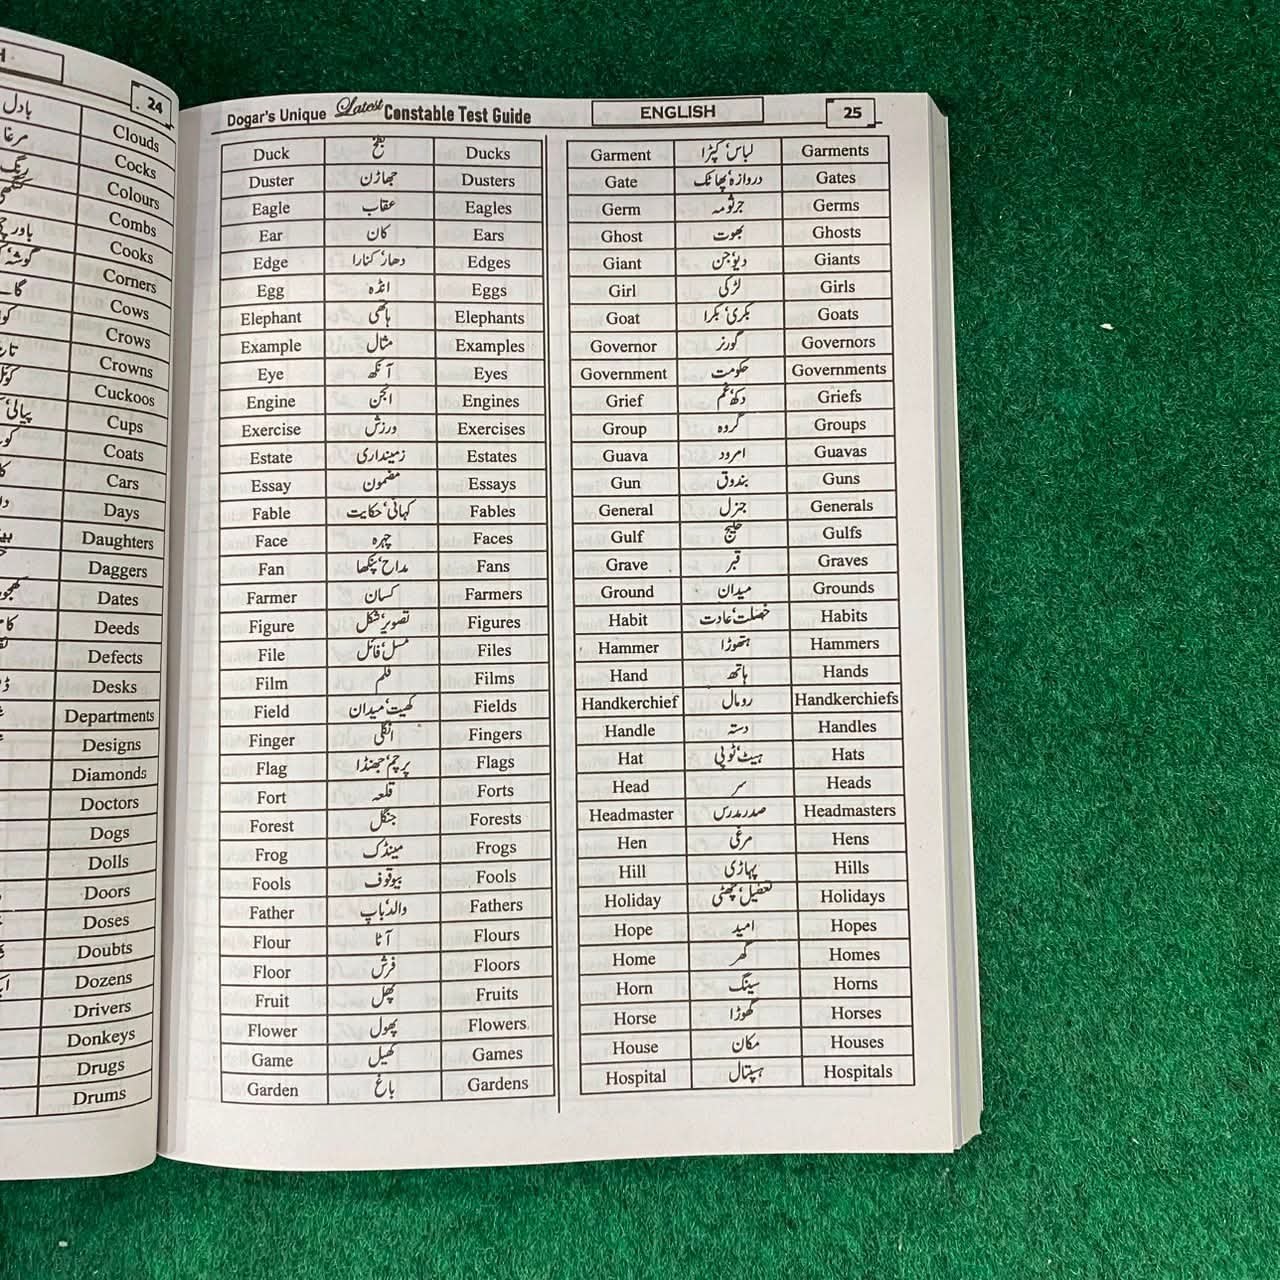 24
بادل Clouds
مرغا Cocks
رنگ Colours
Combs
Cooks
Corners
Cows
Crows
Crowns
Cuckoos
Cups
Coats
Cars
Days
Daughters
Daggers
Dates
Deeds
Defects
Desks
Departments
Designs
Diamonds
Doctors
Dogs
Dolls
Doors
Doses
Doubts
Dozens
Drivers
Donkeys
Drugs
Drums
Dogar's Unique Latest Constable Test Guide ENGLISH 25
Duck بطخ Ducks
Duster جھاڑن Dusters
Eagle عقاب Eagles
Ear کان Ears
Edge دھار، کنارا Edges
Egg انڈہ Eggs
Elephant ہاتھی Elephants
Example مثال Examples
Eye آنکھ Eyes
Engine انجن Engines
Exercise ورزش Exercises
Estate زمینداری Estates
Essay مضمون Essays
Fable کہانی، حکایت Fables
Face چہرہ Faces
Fan مداح، پنکھا Fans
Farmer کسان Farmers
Figure تصویر، شکل Figures
File مسل، فائل Files
Film فلم Films
Field کھیت، میدان Fields
Finger انگلی Fingers
Flag پرچم، جھنڈا Flags
Fort قلعہ Forts
Forest جنگل Forests
Frog مینڈک Frogs
Fools بیوقوف Fools
Father والد، باپ Fathers
Flour آٹا Flours
Floor فرش Floors
Fruit پھل Fruits
Flower پھول Flowers
Game کھیل Games
Garden باغ Gardens
Garment لباس، کپڑا Garments
Gate دروازہ، پھاٹک Gates
Germ جرثومہ Germs
Ghost بھوت Ghosts
Giant دیو، جن Giants
Girl لڑکی Girls
Goat بکری، بکرا Goats
Governor گورنر Governors
Government حکومت Governments
Grief دکھ، غم Griefs
Group گروہ Groups
Guava امرود Guavas
Gun بندوق Guns
General جنرل Generals
Gulf خلیج Gulfs
Grave قبر Graves
Ground میدان Grounds
Habit خصلت، عادت Habits
Hammer ہتھوڑا Hammers
Hand ہاتھ Hands
Handkerchief رومال Handkerchiefs
Handle دستہ Handles
Hat ہیٹ، ٹوپی Hats
Head سر Heads
Headmaster صدر مدرس Headmasters
Hen مرغی Hens
Hill پہاڑی Hills
Holiday تعطیل، چھٹی Holidays
Hope امید Hopes
Home گھر Homes
Horn سینگ Horns
Horse گھوڑا Horses
House مکان Houses
Hospital ہسپتال Hospitals